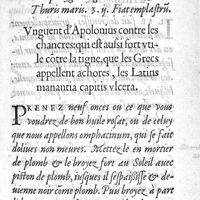 Thuris maris. 3. ij. Fiat emplastrũ.
Vnguent d'Apolonius contre les
chancres: qui est aussi fort vti-
le cõtre la tigne, que les Grecs
appellent achores, les Latins
manantia capitis vlcera.
PRENEZ neuf onces ou ce que vous
voudrez de bon huile rosat, ou de celuy
que nous appellons omphacinum, qui se fait
d'oliues non meures. Mettez le en mortier
de plomb & le broyez fort au Soleil auec
piston de plomb, iusques il s'espãsisse & de-
uienne noir cõme plomb. Puis broyez à part